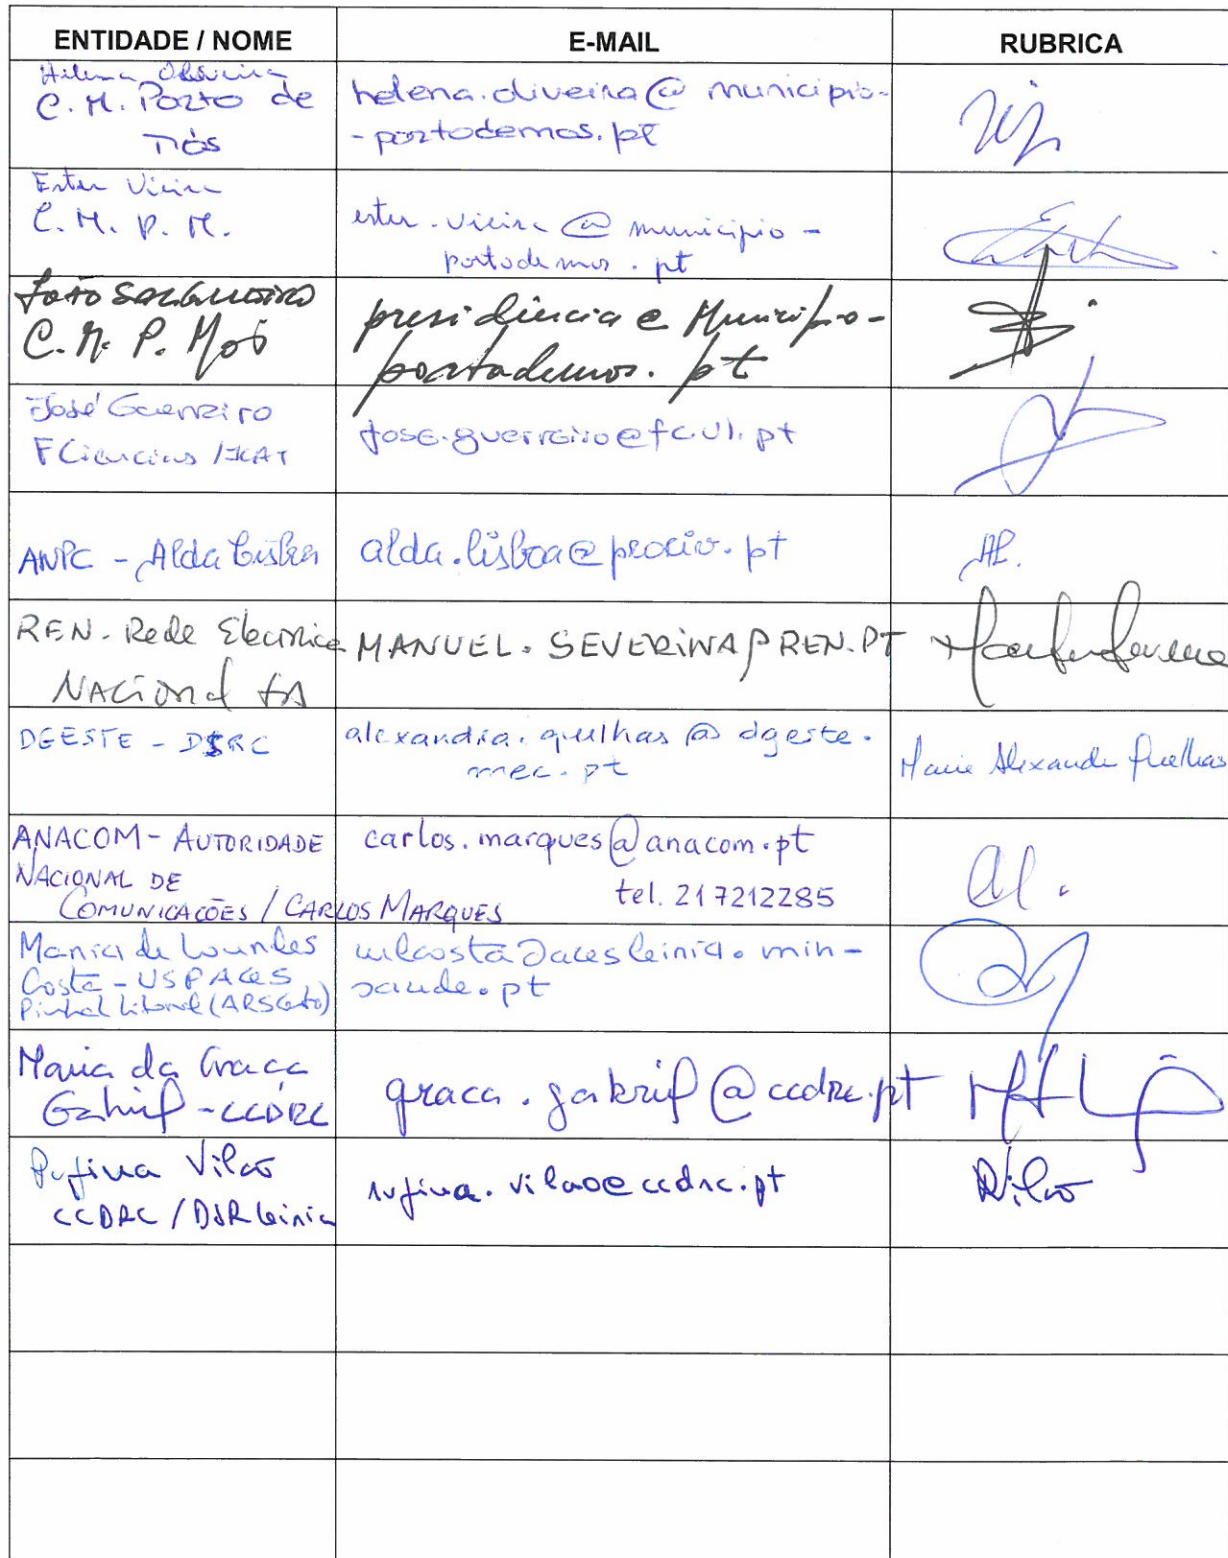 ENTIDADE / NOME E-MAIL RUBRICA
Helena Oliveira
C. M. Porto de
Mós
helena.oliveira@municipio-
-portodemos.pt
Ester Vieira
C. M. P. M.
ester.vieira@municipio-
portodemos.pt
João Salgueiro
C. M. P. Mós
presidência@Municipio-
portodemos.pt
José Guerreiro
FCiencias /
jose.guerreiro@fc.ul.pt
ANPC - Alda Lisboa
alda.lisboa@prociv.pt
AL.
REN. Rede Electrica
Nacional SA
MANUEL.SEVERINO@REN.PT
DGESTE - DSRC
alexandra.quelhas@dgeste.
mec.pt
Maria Alexandra Quelhas
ANACOM - AUTORIDADE
NACIONAL DE
COMUNICAÇÕES / CARLOS MARQUES
carlos.marques@anacom.pt
tel. 217212285
Maria de Lourdes
Costa - USP ACES
Pinhal Litoral (ARSCentro)
mlcosta@acesleiria.min-
saude.pt
Maria da Graça
Gabriel - CCDRC
graca.gabriel@ccdrc.pt
Rufina Vilão
CCDRC / DSR Leiria
rufina.vilao@ccdrc.pt
RVilão